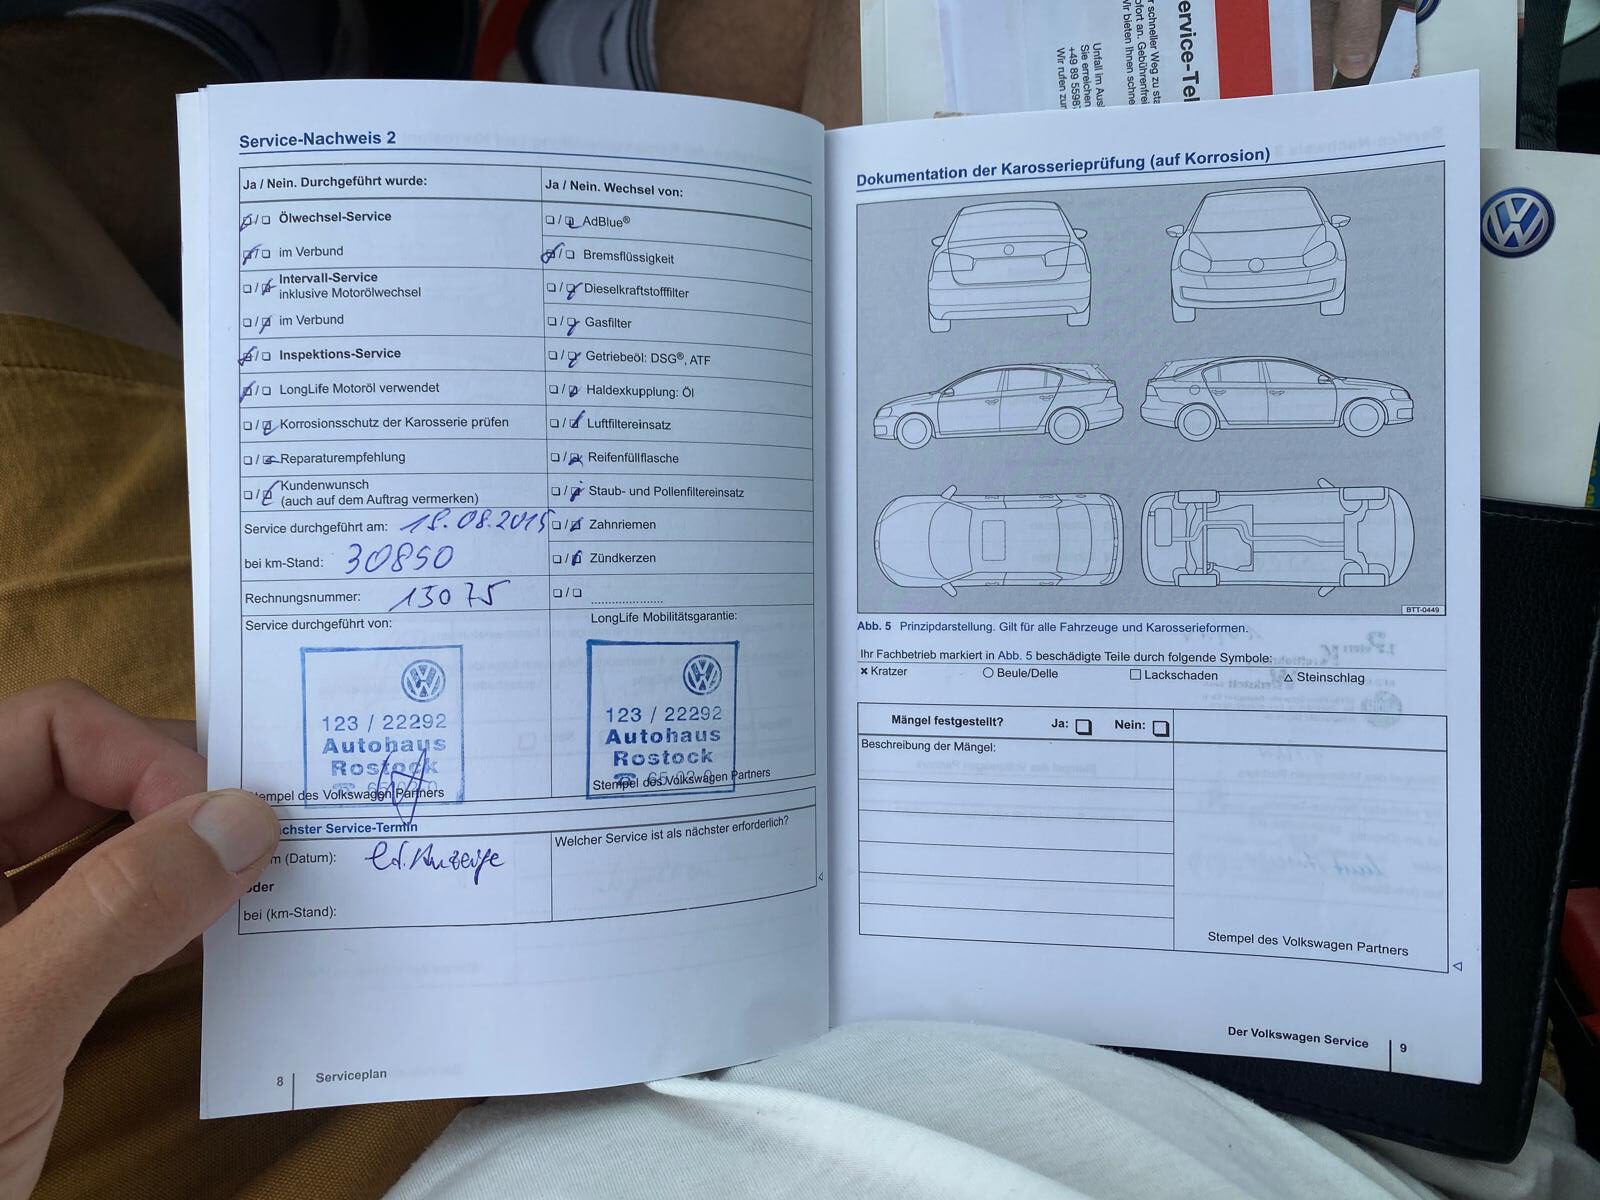 Service-Nachweis 2
Ja / Nein. Durchgeführt wurde:
Ölwechsel-Service
im Verbund
Intervall-Service
inklusive Motorölwechsel
im Verbund
Inspektions-Service
LongLife Motoröl verwendet
Korrosionsschutz der Karosserie prüfen
Reparaturempfehlung
Kundenwunsch
(auch auf dem Auftrag vermerken)
Service durchgeführt am: 18.08.2015
bei km-Stand: 30850
Rechnungsnummer: 13075
Service durchgeführt von:
123 / 22292
Autohaus
Rostock
Stempel des Volkswagen Partners
Ja / Nein. Wechsel von:
AdBlue®
Bremsflüssigkeit
Dieselkraftstofffilter
Gasfilter
Getriebeöl: DSG®, ATF
Haldexkupplung: Öl
Luftfiltereinsatz
Reifenfüllflasche
Staub- und Pollenfiltereinsatz
Zahnriemen
Zündkerzen
LongLife Mobilitätsgarantie:
123 / 22292
Autohaus
Rostock
Stempel des Volkswagen Partners
chster Service-Termin
m (Datum): lt. Anzeige
oder
bei (km-Stand):
Welcher Service ist als nächster erforderlich?
8 Serviceplan
Dokumentation der Karosserieprüfung (auf Korrosion)
BTT-0449
Abb. 5 Prinzipdarstellung. Gilt für alle Fahrzeuge und Karosserieformen.
Ihr Fachbetrieb markiert in Abb. 5 beschädigte Teile durch folgende Symbole:
× Kratzer ○ Beule/Delle □ Lackschaden △ Steinschlag
Mängel festgestellt? Ja: Nein:
Beschreibung der Mängel:
Stempel des Volkswagen Partners
Der Volkswagen Service 9
ervice-Tel
r schneller Weg zu sta
ofort an. Gebührenfrei
Wir bieten Ihnen schne
Unfall im Ausl
Sie erreichen
+49 89 5598
Wir rufen zur